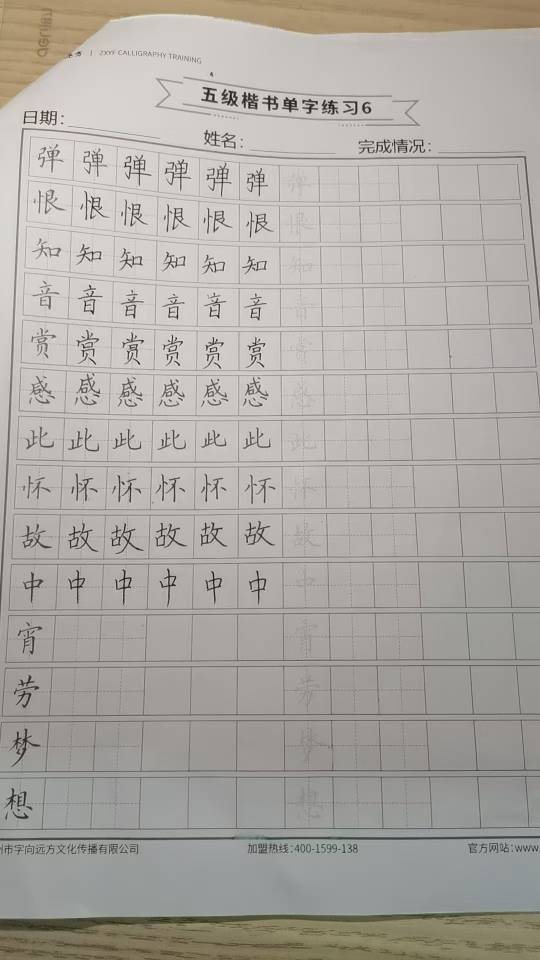 ZXYF CALLIGRAPHY TRAINING
五级楷书单字练习6
日期: 姓名: 完成情况:
弹 弹 弹 弹 弹 弹 弹
恨 恨 恨 恨 恨 恨 恨
知 知 知 知 知 知 知
音 音 音 音 音 音 音
赏 赏 赏 赏 赏 赏 赏
感 感 感 感 感 感 感
此 此 此 此 此 此 此
怀 怀 怀 怀 怀 怀 怀
故 故 故 故 故 故 故
中 中 中 中 中 中 中
宵 宵
劳 劳
梦 梦
想 想
州市字向远方文化传播有限公司 加盟热线:400-1599-138 官方网站:www.